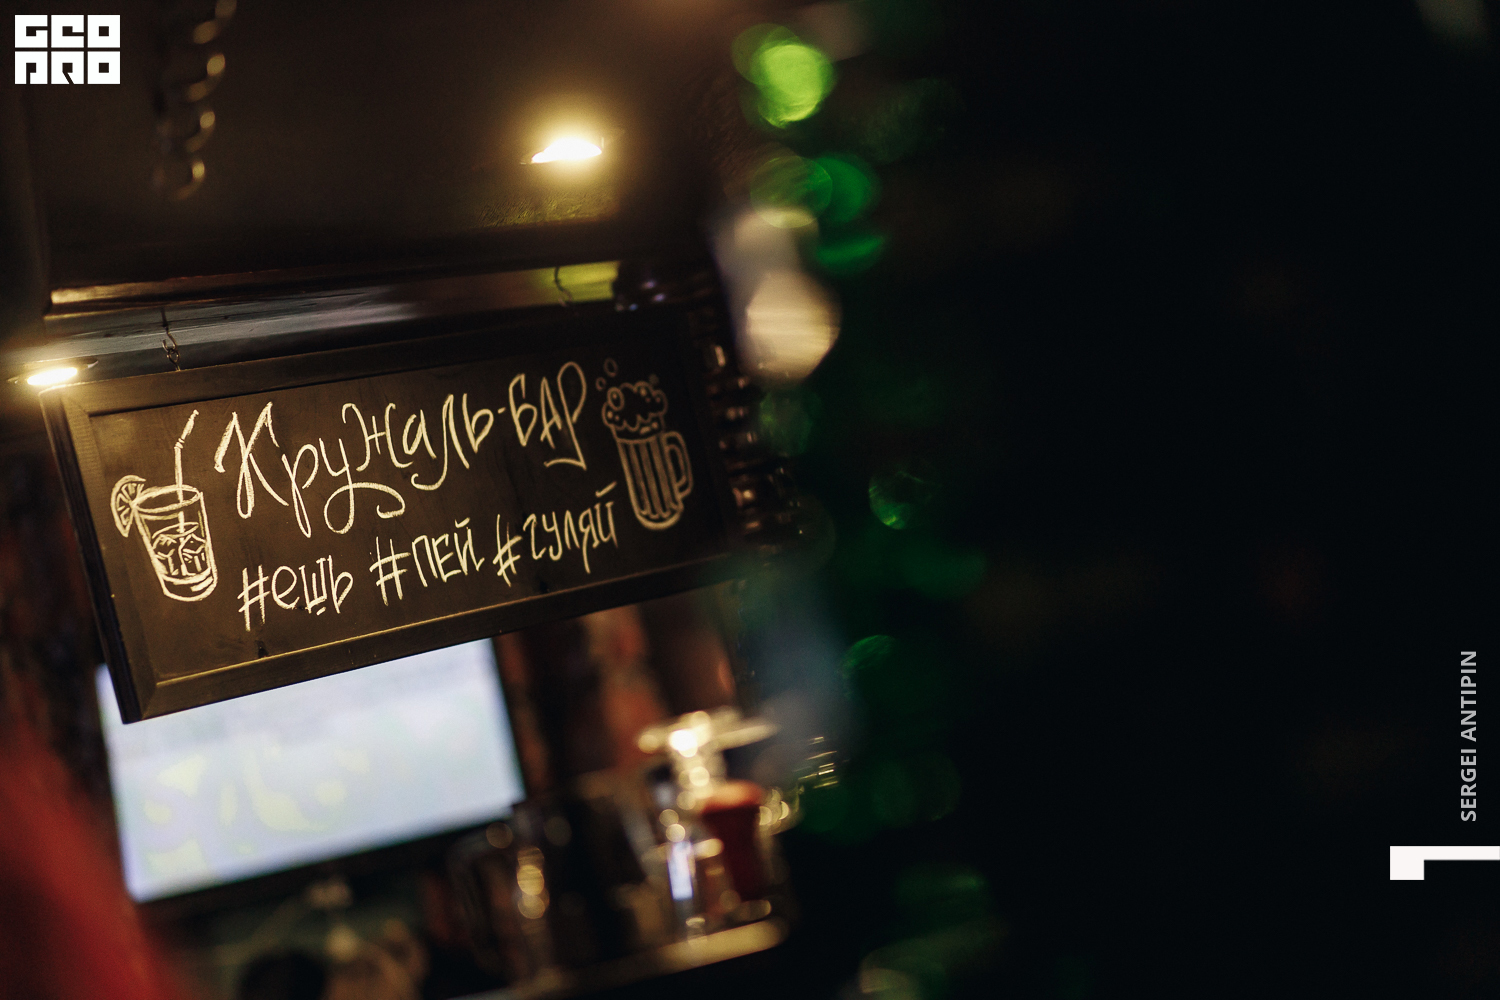 GEO
PRO
Кружаль-БАР
#ешь #пей #гуляй
SERGEI ANTIPIN